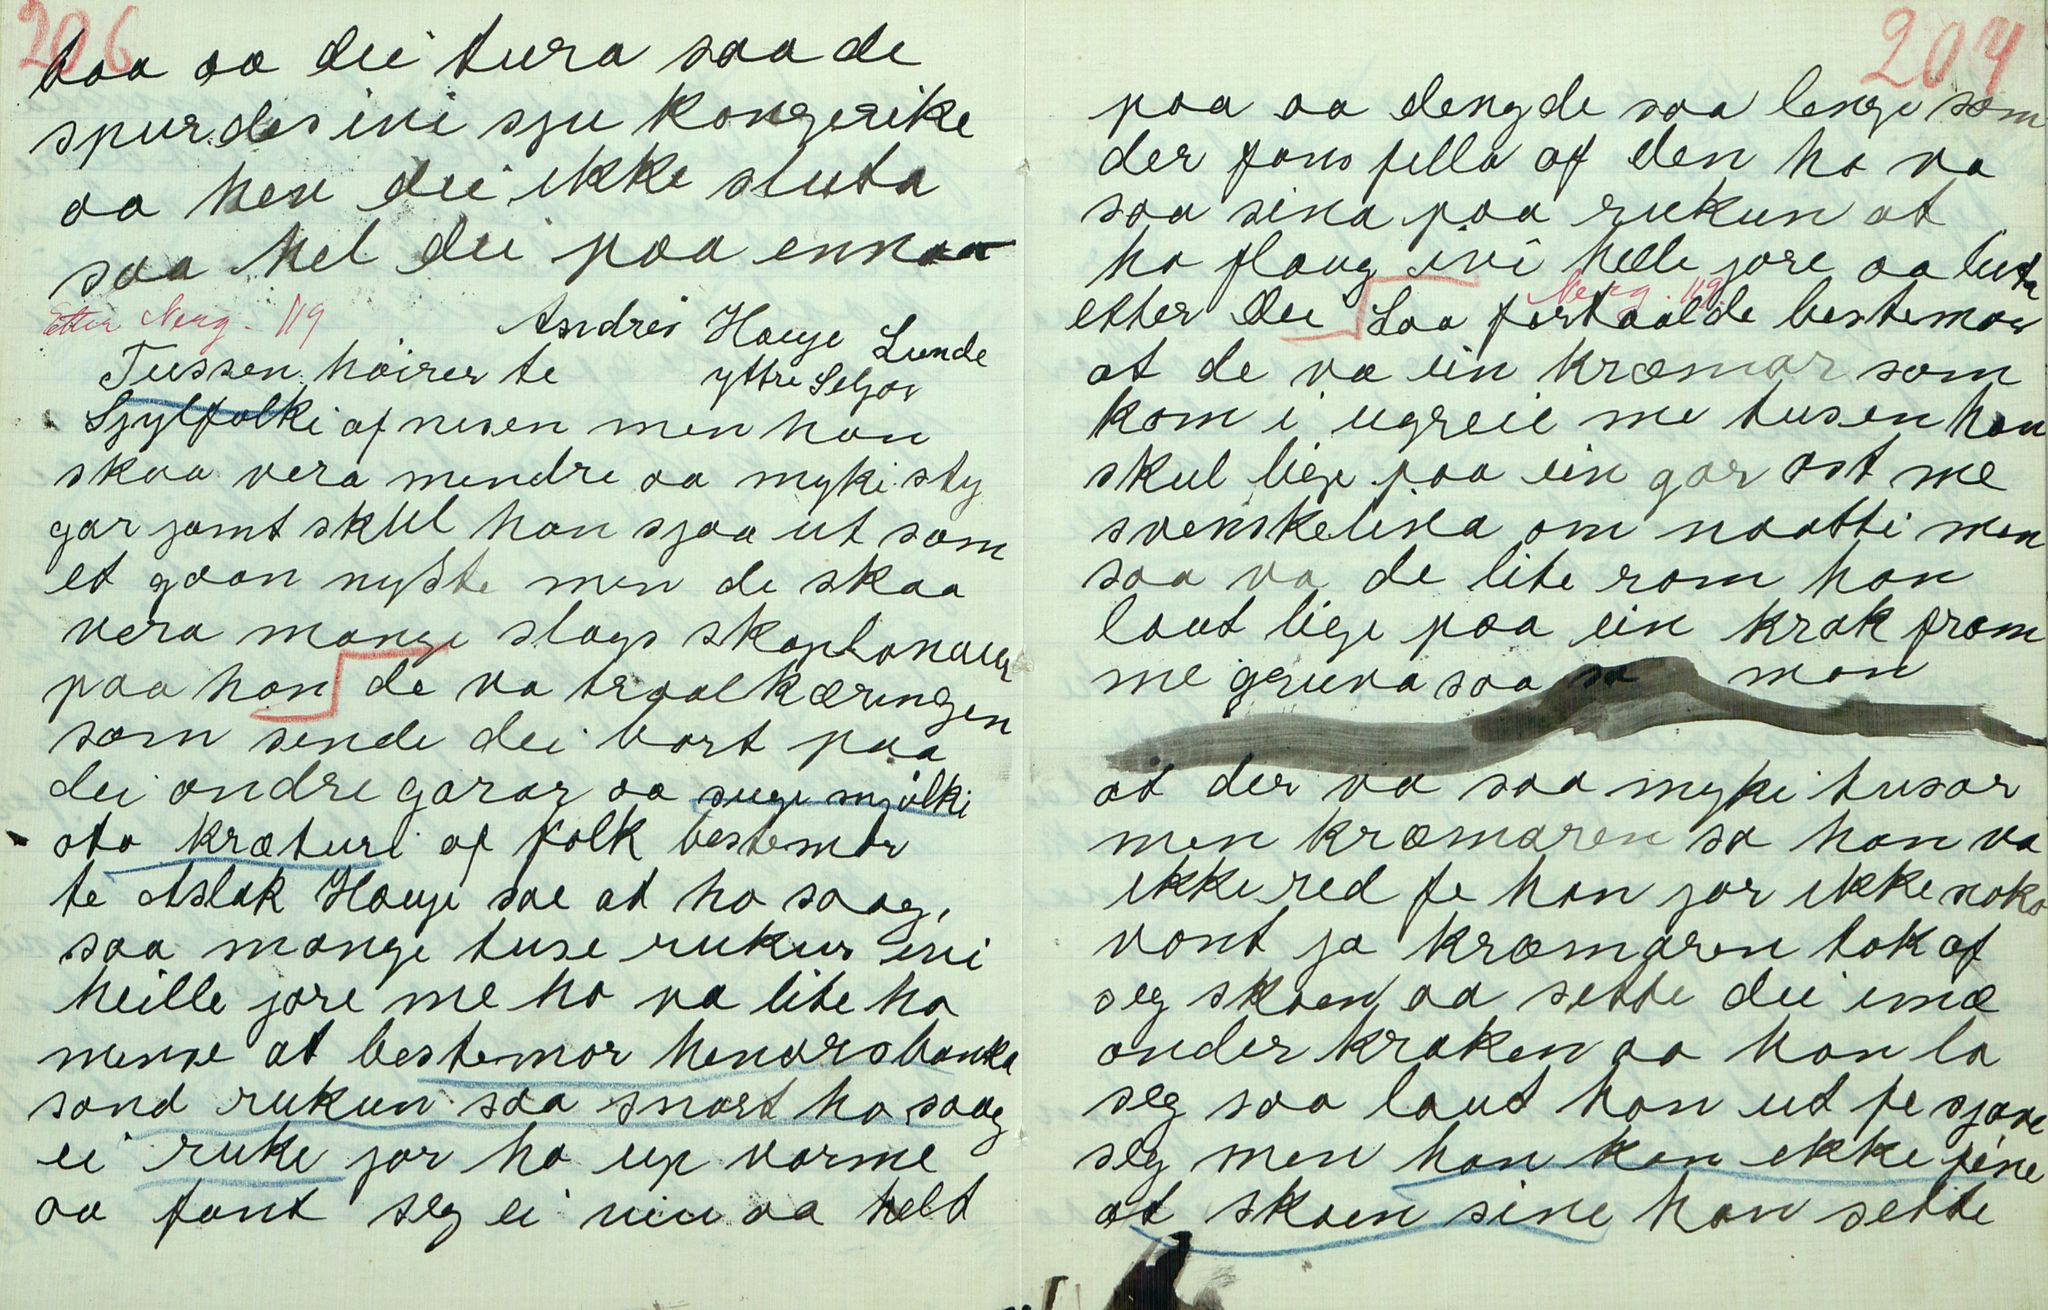 206
taa aa dei tura saa de
spurdes ivi sju kongerike
aa hev dei ikke sluta
saa hel dei paa ennaa
Etter Nerg. 119
Andres Hauge Lunde
yttre Seljor
Tussen höirer te
Sjylfolki af nesen men han
skaa vera mendre aa myki sty
gar jamt skul han sjaa ut som
et graan nyste men de skaa
vera mange slags skaplonaur
paa han de va traalkæringen
som sende dei bort paa
dei andre garar aa suge mjölki
ota kræturi af folk bestemor
te Aslak Hauge sae at ho saag,
saa mange tuse rukur ivi
heille jore me ho va lite ho
mense at bestemor henars banka
sand rukun saa snart ho saag
ei ruke jor ho up varme
aa fant seg ei niu aa helt
204
paa aa dengde saa lenge som
der fans filla af den ho va
saa sina paa rukun at
ho flaug ivi helle jore aa leita
Nerg. 119.
etter dei Saa fortaalde bestemor
at de va ein kræmar som
kom i ugreie me tusen han
skul liege paa ein gar ost me
svenskelina om naatti men
saa va de lite rom han
laut liege paa ein krak fram
me gruva saa sa man
at der va saa myki tusar
men kræmaren sa han va
ikke red fe han jor ikke noko
vont ja kræmaren tok af
seg skoen aa sette dei inæ
onder kraken aa han la
seg saa laut han ut fe sjaae
seg men han kan ikke fine
at skoen sine han sette